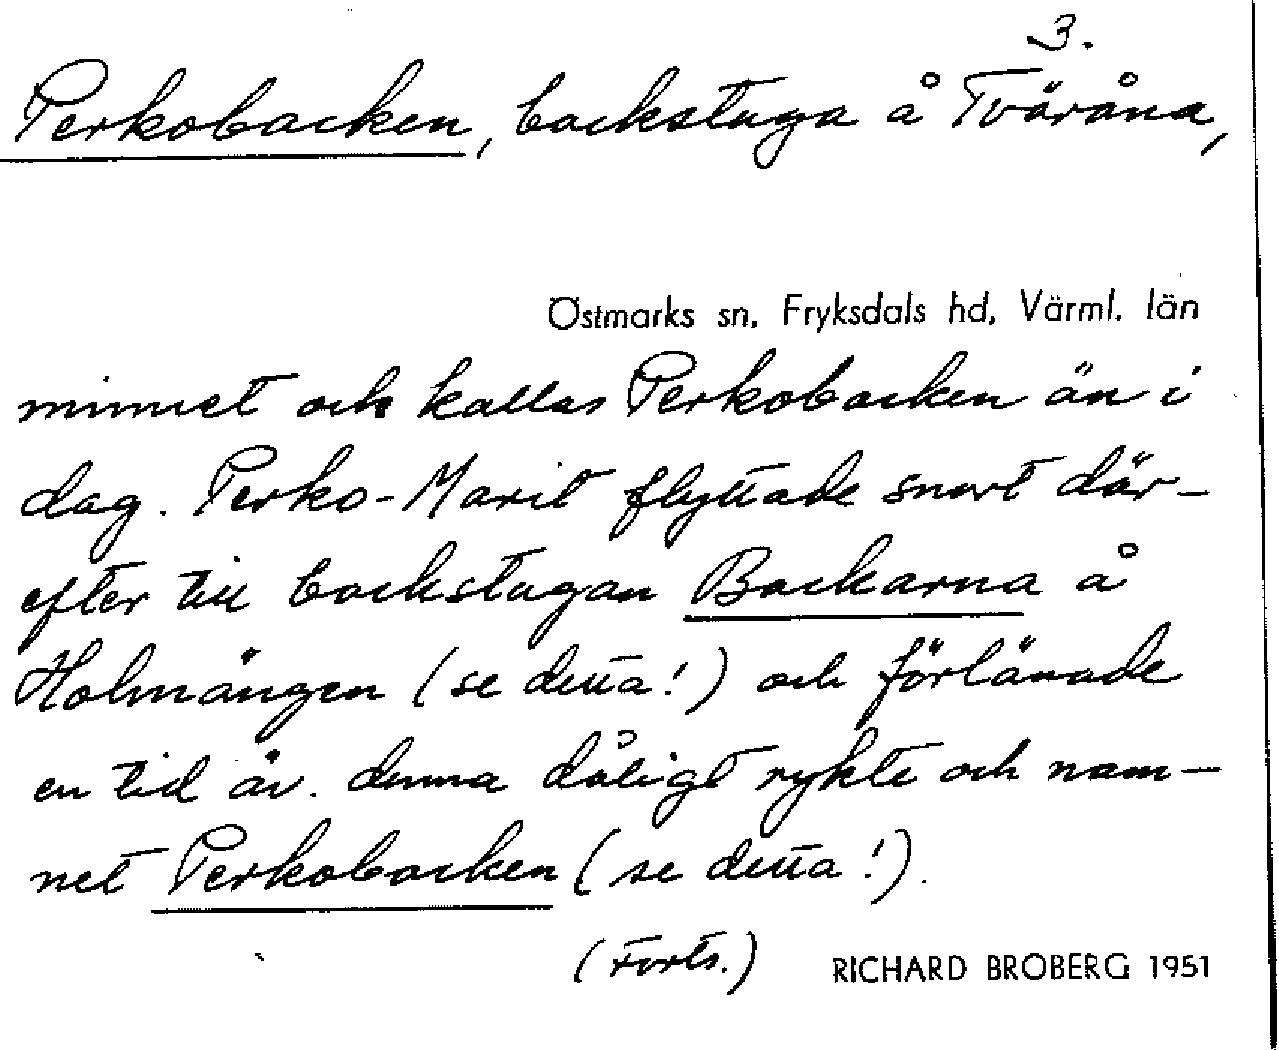 3.
Perkobacken, backstuga å Tväråna,
Östmarks sn, Fryksdals hd, Värml. län
minnet och kallas Perkobacken än i
dag. Perko-Marit flyttade snart där-
efter till backstugan Backarna å
Holmängen (se detta!) och förlänade
en tid äv. denna dåligt rykte och nam-
net Perkobacken (se detta!).
(Forts.) RICHARD BROBERG 1951